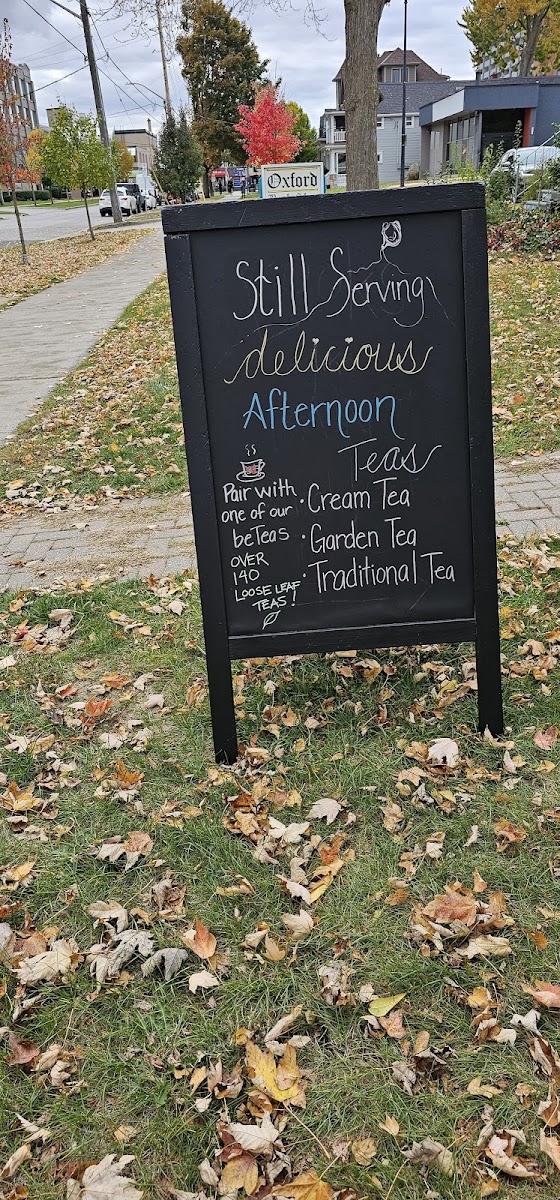 Oxford
Still Serving
delicious
Afternoon
Teas
Pair with
one of our
beTeas
OVER
140
LOOSE LEAF
TEAS!
• Cream Tea
• Garden Tea
• Traditional Tea